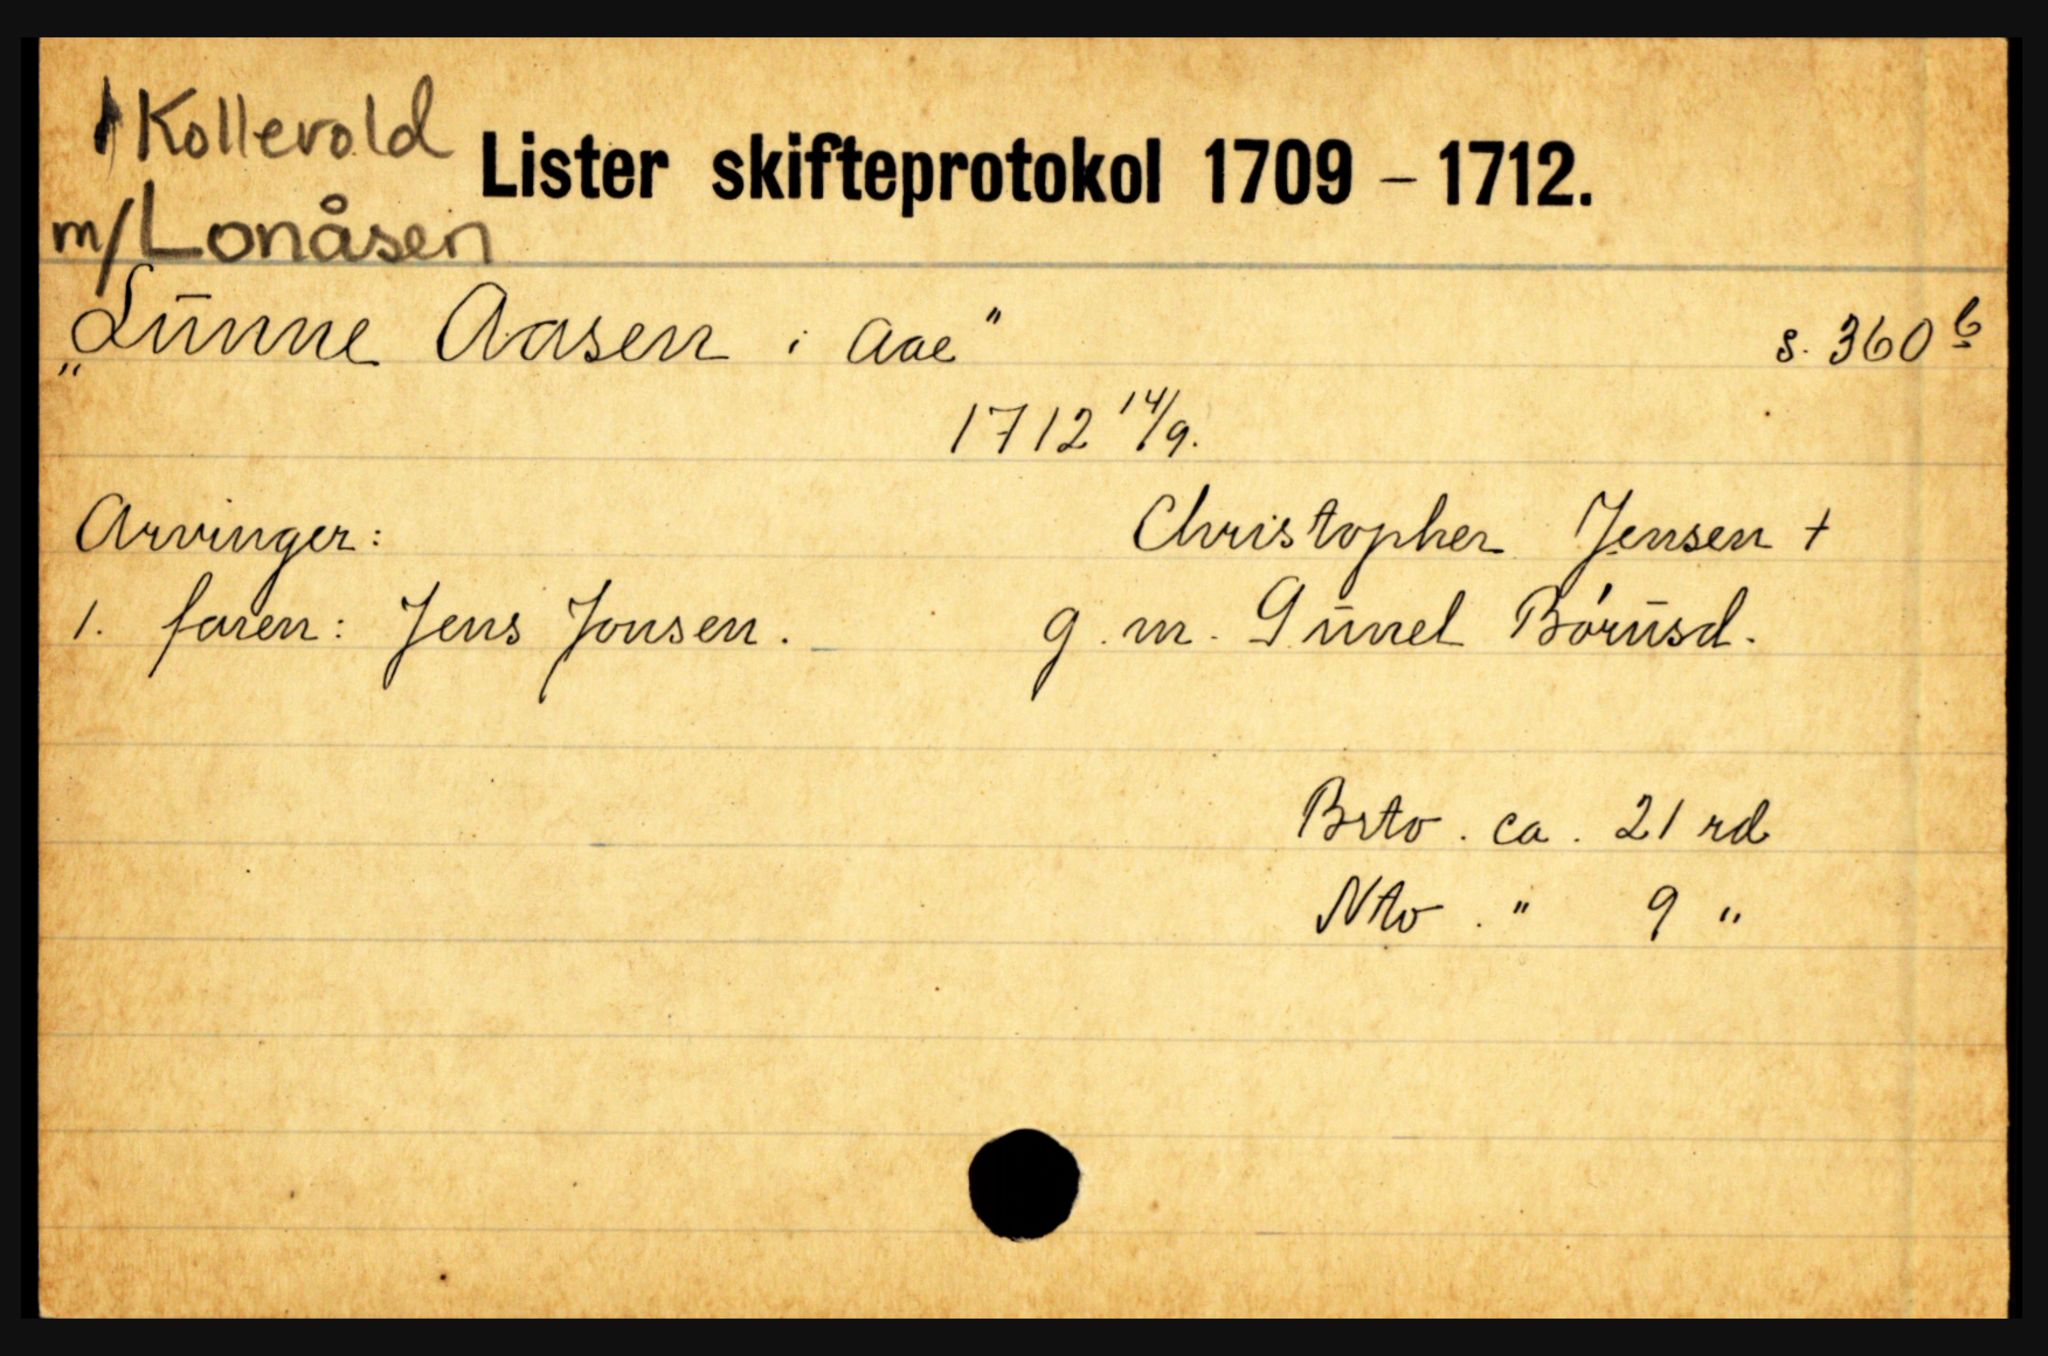 Kollevold
Lister skifteprotokol 1709 – 1712.
m/Lonåsen
„Lūnne Aasen i Aae" s. 360 b
1712 14/9.
Arvinger: Christopher Jensen +
1. faren: Jens Jonsen. g. m. Gūnel Børūsd.
Brto. ca. 21 rd
Nto. " 9 "